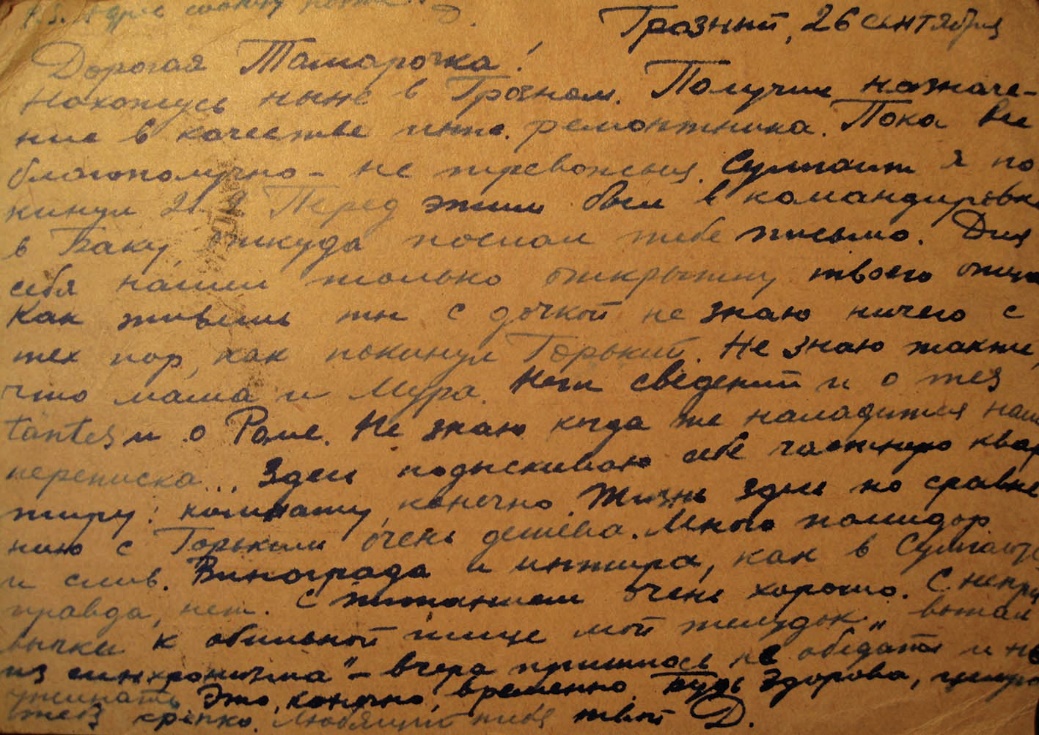 P.S. Адрес сообщу позже.
Грозный, 26 сентября
Дорогая Тамарочка!
Нахожусь ныне в Грозном. Получил назначе-
ние в качестве инж. ремонтника. Пока все
благополучно - не тревожься. Сумгаит я по
кинул 21.9 Перед этим был в командировке
в Баку, откуда послал тебе письмо. Для
себя нашел только открытку твоего отца
Как живешь ты с дочкой не знаю ничего с
тех пор, как покинул Горький. Не знаю также,
что мама и Мура. Нет сведений и о тез
tantes и о Роме. Не знаю когда же наладится наша
переписка... Здесь подыскиваю себе частную квар
тиру: комнату, конечно. Жизнь здесь по сравне
нию с Горьким очень дешева. Много помидор
и слив. Винограда и инжира, как в Сумгаите
правда, нет. С питанием очень хорошо. С непри
вычки к обильной пище мой желудок „выпал
из синхронизма" - вчера пришлось не обедать и не
ужинать. Это, конечно, временно. Будь здорова, целую
тебя крепко. Любящий тебя твой Д.